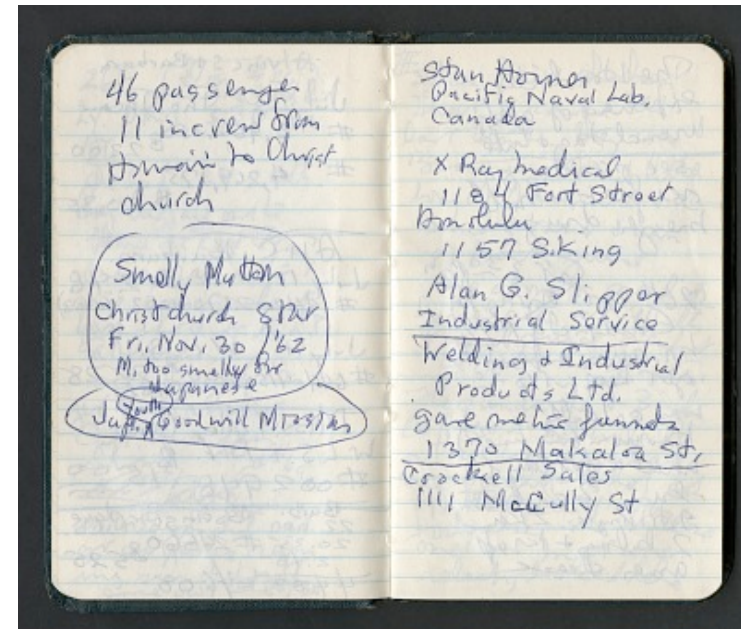 46 passenger
11 in crew from
to Christ
church
Smelly Mutton
Christchurch Star
Fri. Nov. 30 /'62
M. too smelly for
Japanese
Youth
Goodwill Mission
Stan
Pacific Naval Lab.
Canada
X Ray medical
1184 Fort Street
Honolulu
1157 S. King
Alan G. Slipper
Industrial Service
Welding & Industrial
Products Ltd.
gave me funnels
1370 Makaloa St,
Crockell Sales
1111 McCully St